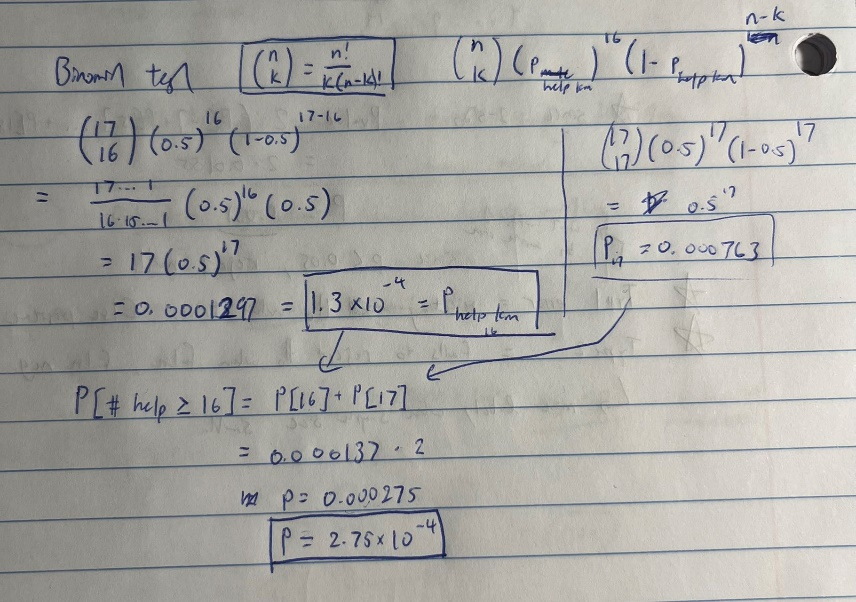 Binomial test   (n k) = n! / k(n-k)!   (n k) (P help km)^16 (1 - P help km)^n-k
(17 16) (0.5)^16 (1-0.5)^17-16
= 17...1 / 16·15...1 (0.5)^16 (0.5)
= 17 (0.5)^17
= 0.0001297 = 1.3 × 10^-4 = P help km 16
(17 17) (0.5)^17 (1-0.5)^17
= 0.5^17
P17 = 0.000763
P[# help ≥ 16] = P[16] + P[17]
= 0.000137 · 2
P = 0.000275
P = 2.75 × 10^-4